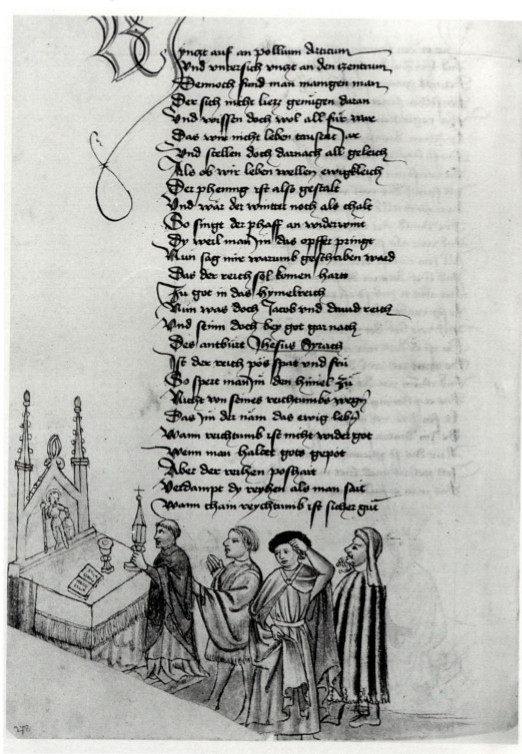 Vnczt auf an pollum Articum
Vnd vntersich vnczt an den Zentrum
Dennoch sind man mangen man
Der sich nicht liesz genügen daran
Vnd wissen doch wol all für war
Das wir nicht leben tausent Jar
Vnd stellen doch darnach all geleich
Als ob wir leben wellen ewigkleich
Der phennig ist also gestalt
Vnd wär der winter noch als chalt
So singt der phaff an widerwint
Dy weil man Jm das opffer pringt
Nun sag mir warumb geschriben ward
Das der reich sol komen hart
Zu got in das hymelreich
Nun was doch Jacob vnd dauid reich
Vnd seinn doch bey got gar nach
Des antburt Jhesus Syrach
Ist der reich pös spat vnd frü
So spert man Jm den himel zü
Nicht von seines reichtumbs wegn
Das Jm der näm das ewig lebn
Wann reichtumb ist nicht wider got
Wenn man haltet gots gepot
Aber der reihen poshait
Verdampt dy reyhen als man sait
Wann chain reychtumb ist sicher gut